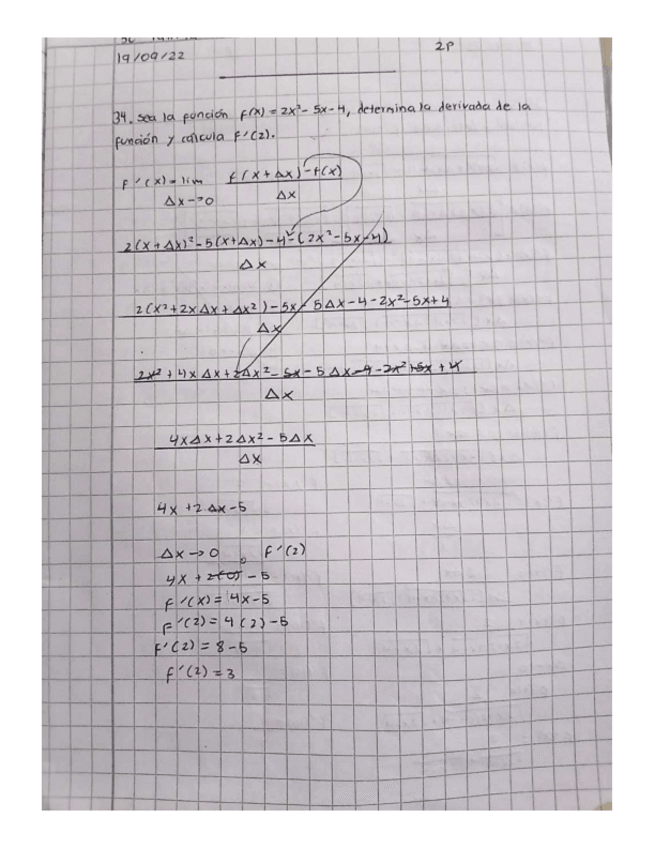 2P
19/09/22
34. Sea la función f(x) = 2x² - 5x - 4, determina la derivada de la
función y calcula f'(2).
f'(x) = lim f(x + Δx) - f(x)
Δx→0 Δx
2(x + Δx)² - 5(x + Δx) - 4 - (2x² - 5x - 4)
Δx
2(x² + 2xΔx + Δx²) - 5x - 5Δx - 4 - 2x² - 5x + 4
Δx
2x² + 4xΔx + 2Δx² - 5x - 5Δx - 4 - 2x² + 5x + 4
Δx
4xΔx + 2Δx² - 5Δx
Δx
4x + 2Δx - 5
Δx → 0 f'(2)
0
4x + 2(0) - 5
f'(x) = 4x - 5
f'(2) = 4(2) - 5
f'(2) = 8 - 5
f'(2) = 3